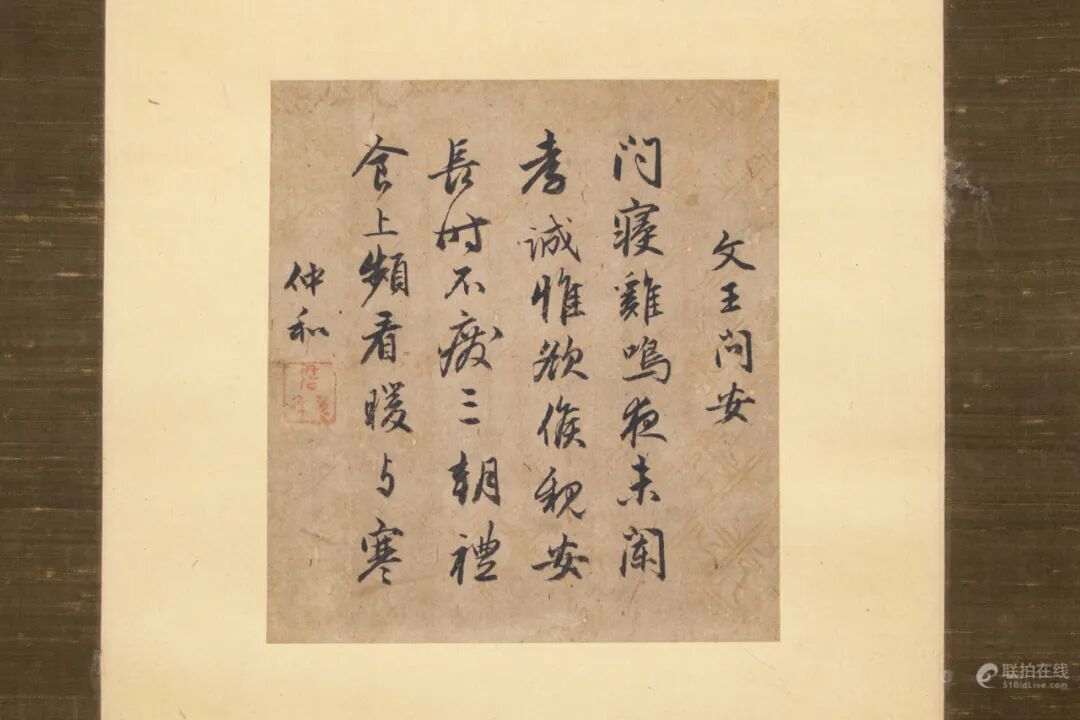 文王问安
问寝雞鳴夜未闌
孝誠惟欲候親安
長时不廢三朝禮
食上頻看暖与寒
仲和
联拍在线
51BidLive.com